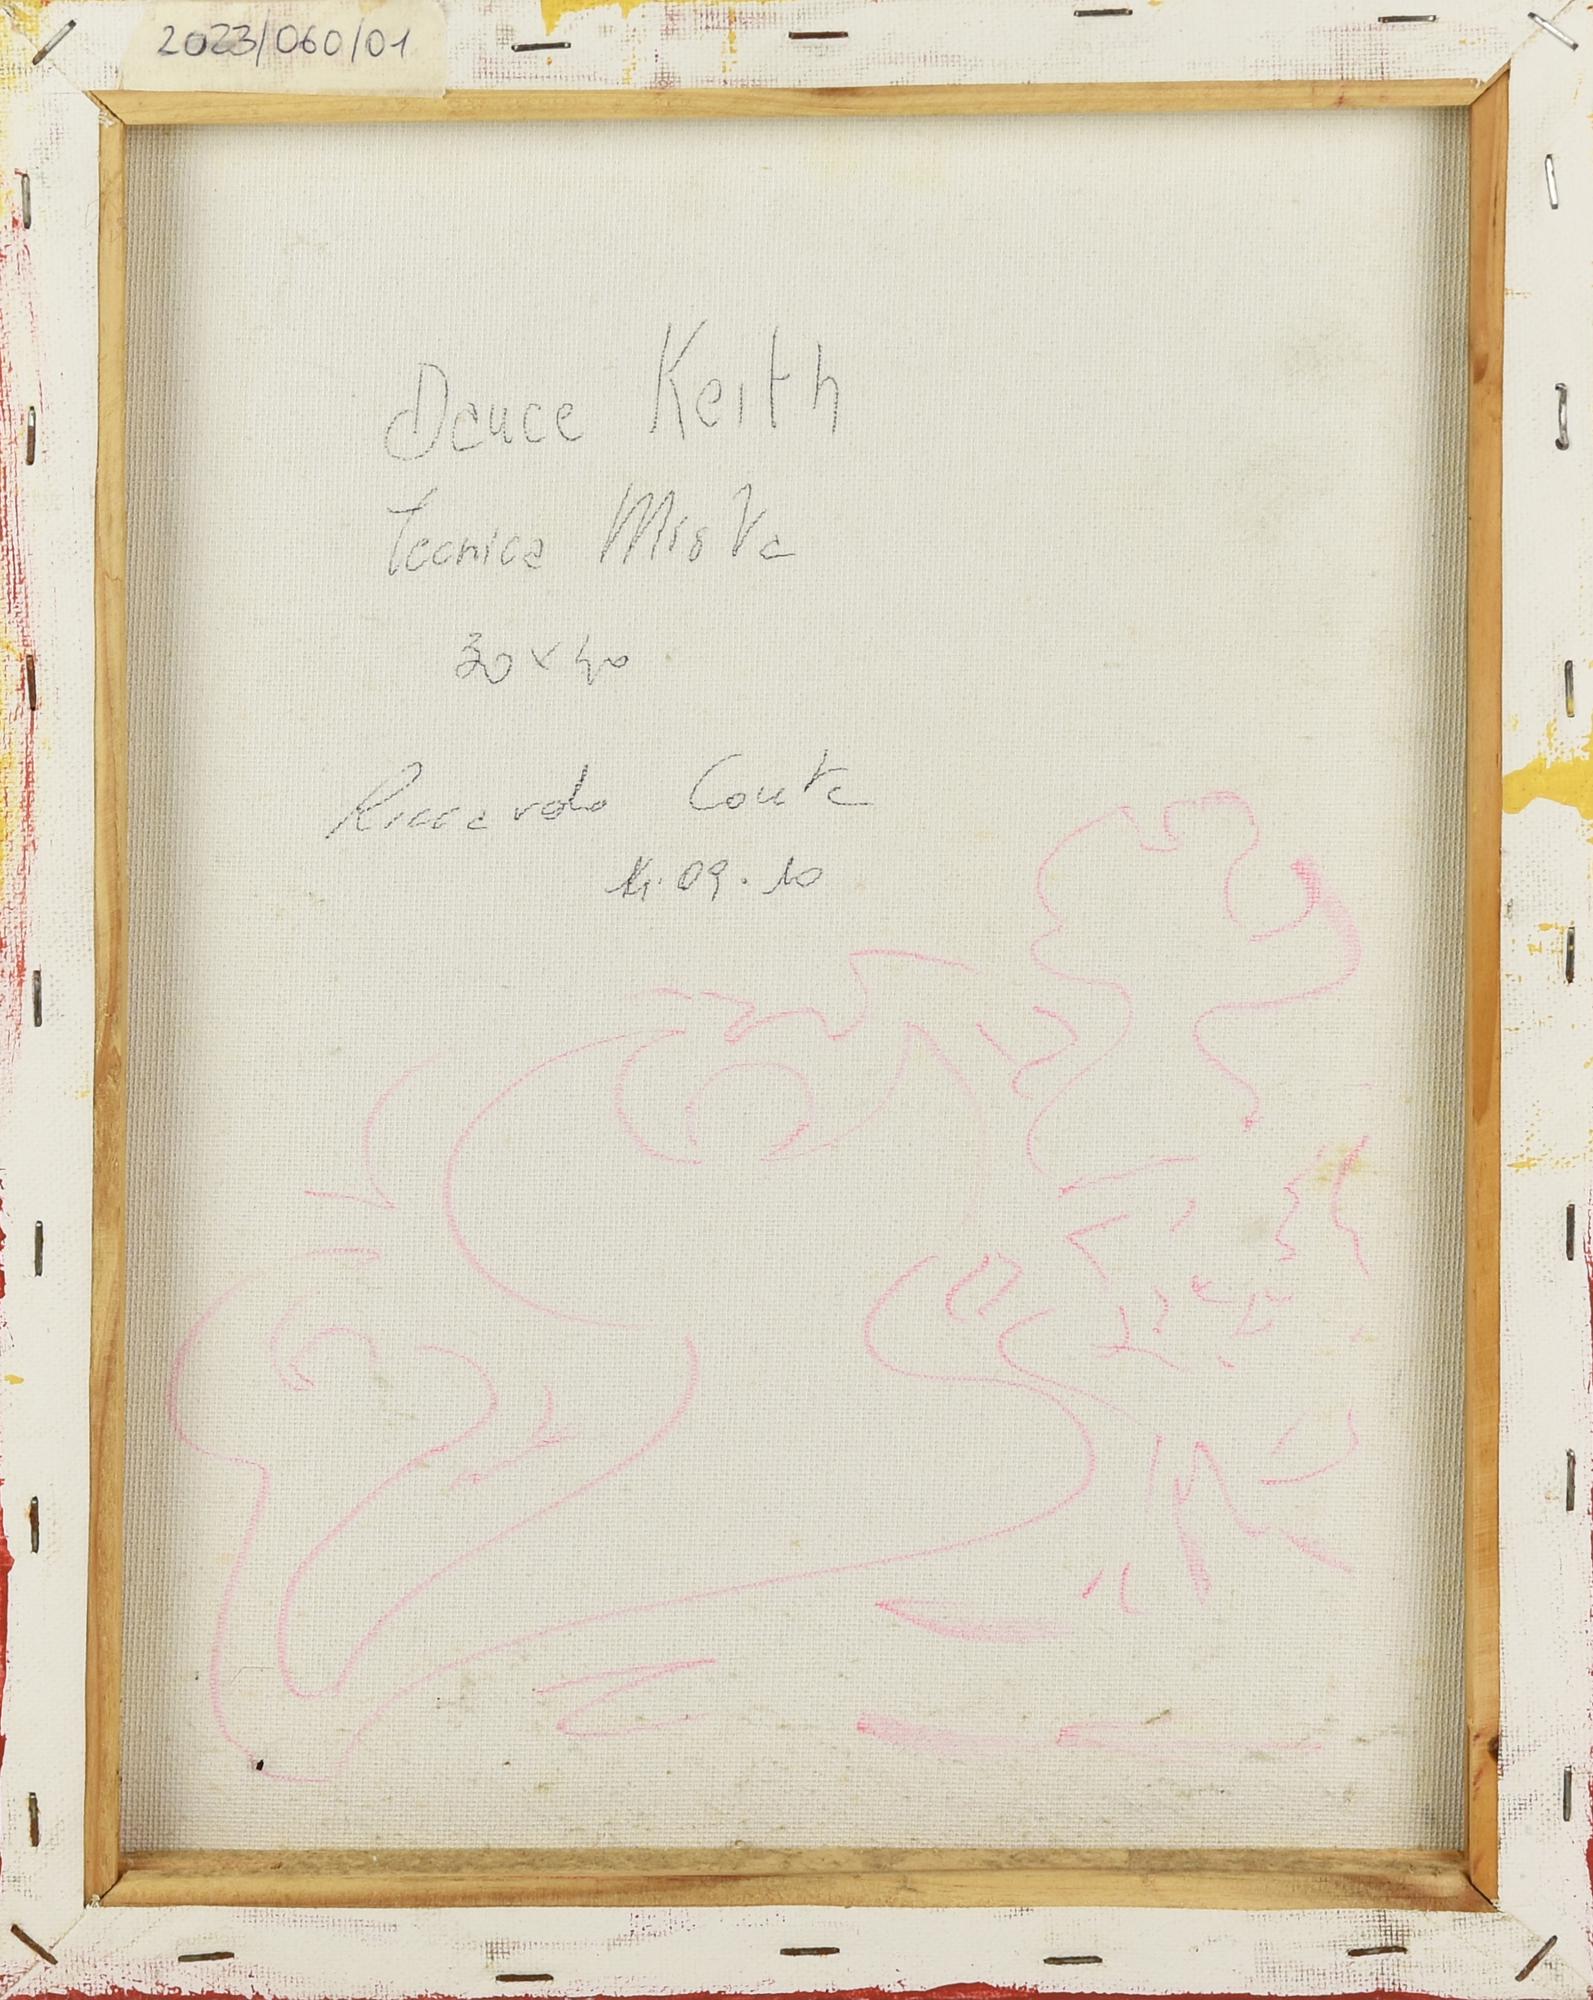 2023/060/01
Deuce Keith
Tecnica Mista
30 x 40
Riccardo Conte
14.09.10